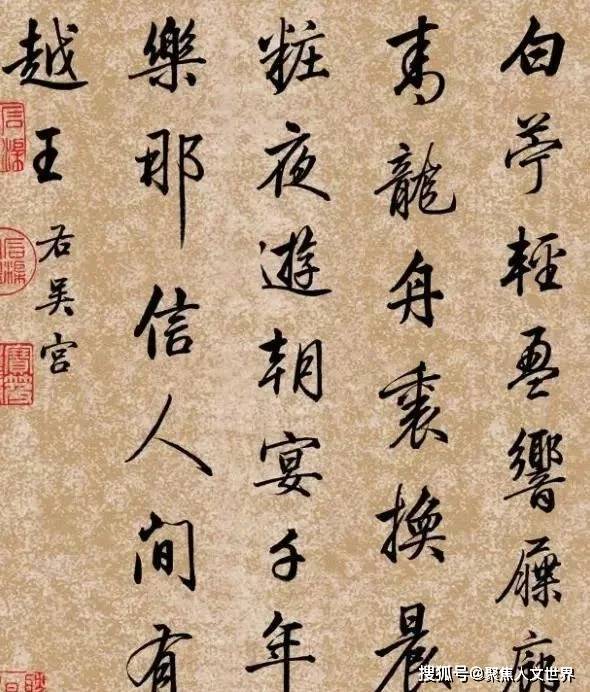 白苧輕盈響屧廊
青龍舟裏換晨
粧夜遊朝宴千年
樂那信人間有
越王
右吳宮
搜狐号@聚焦人文世界